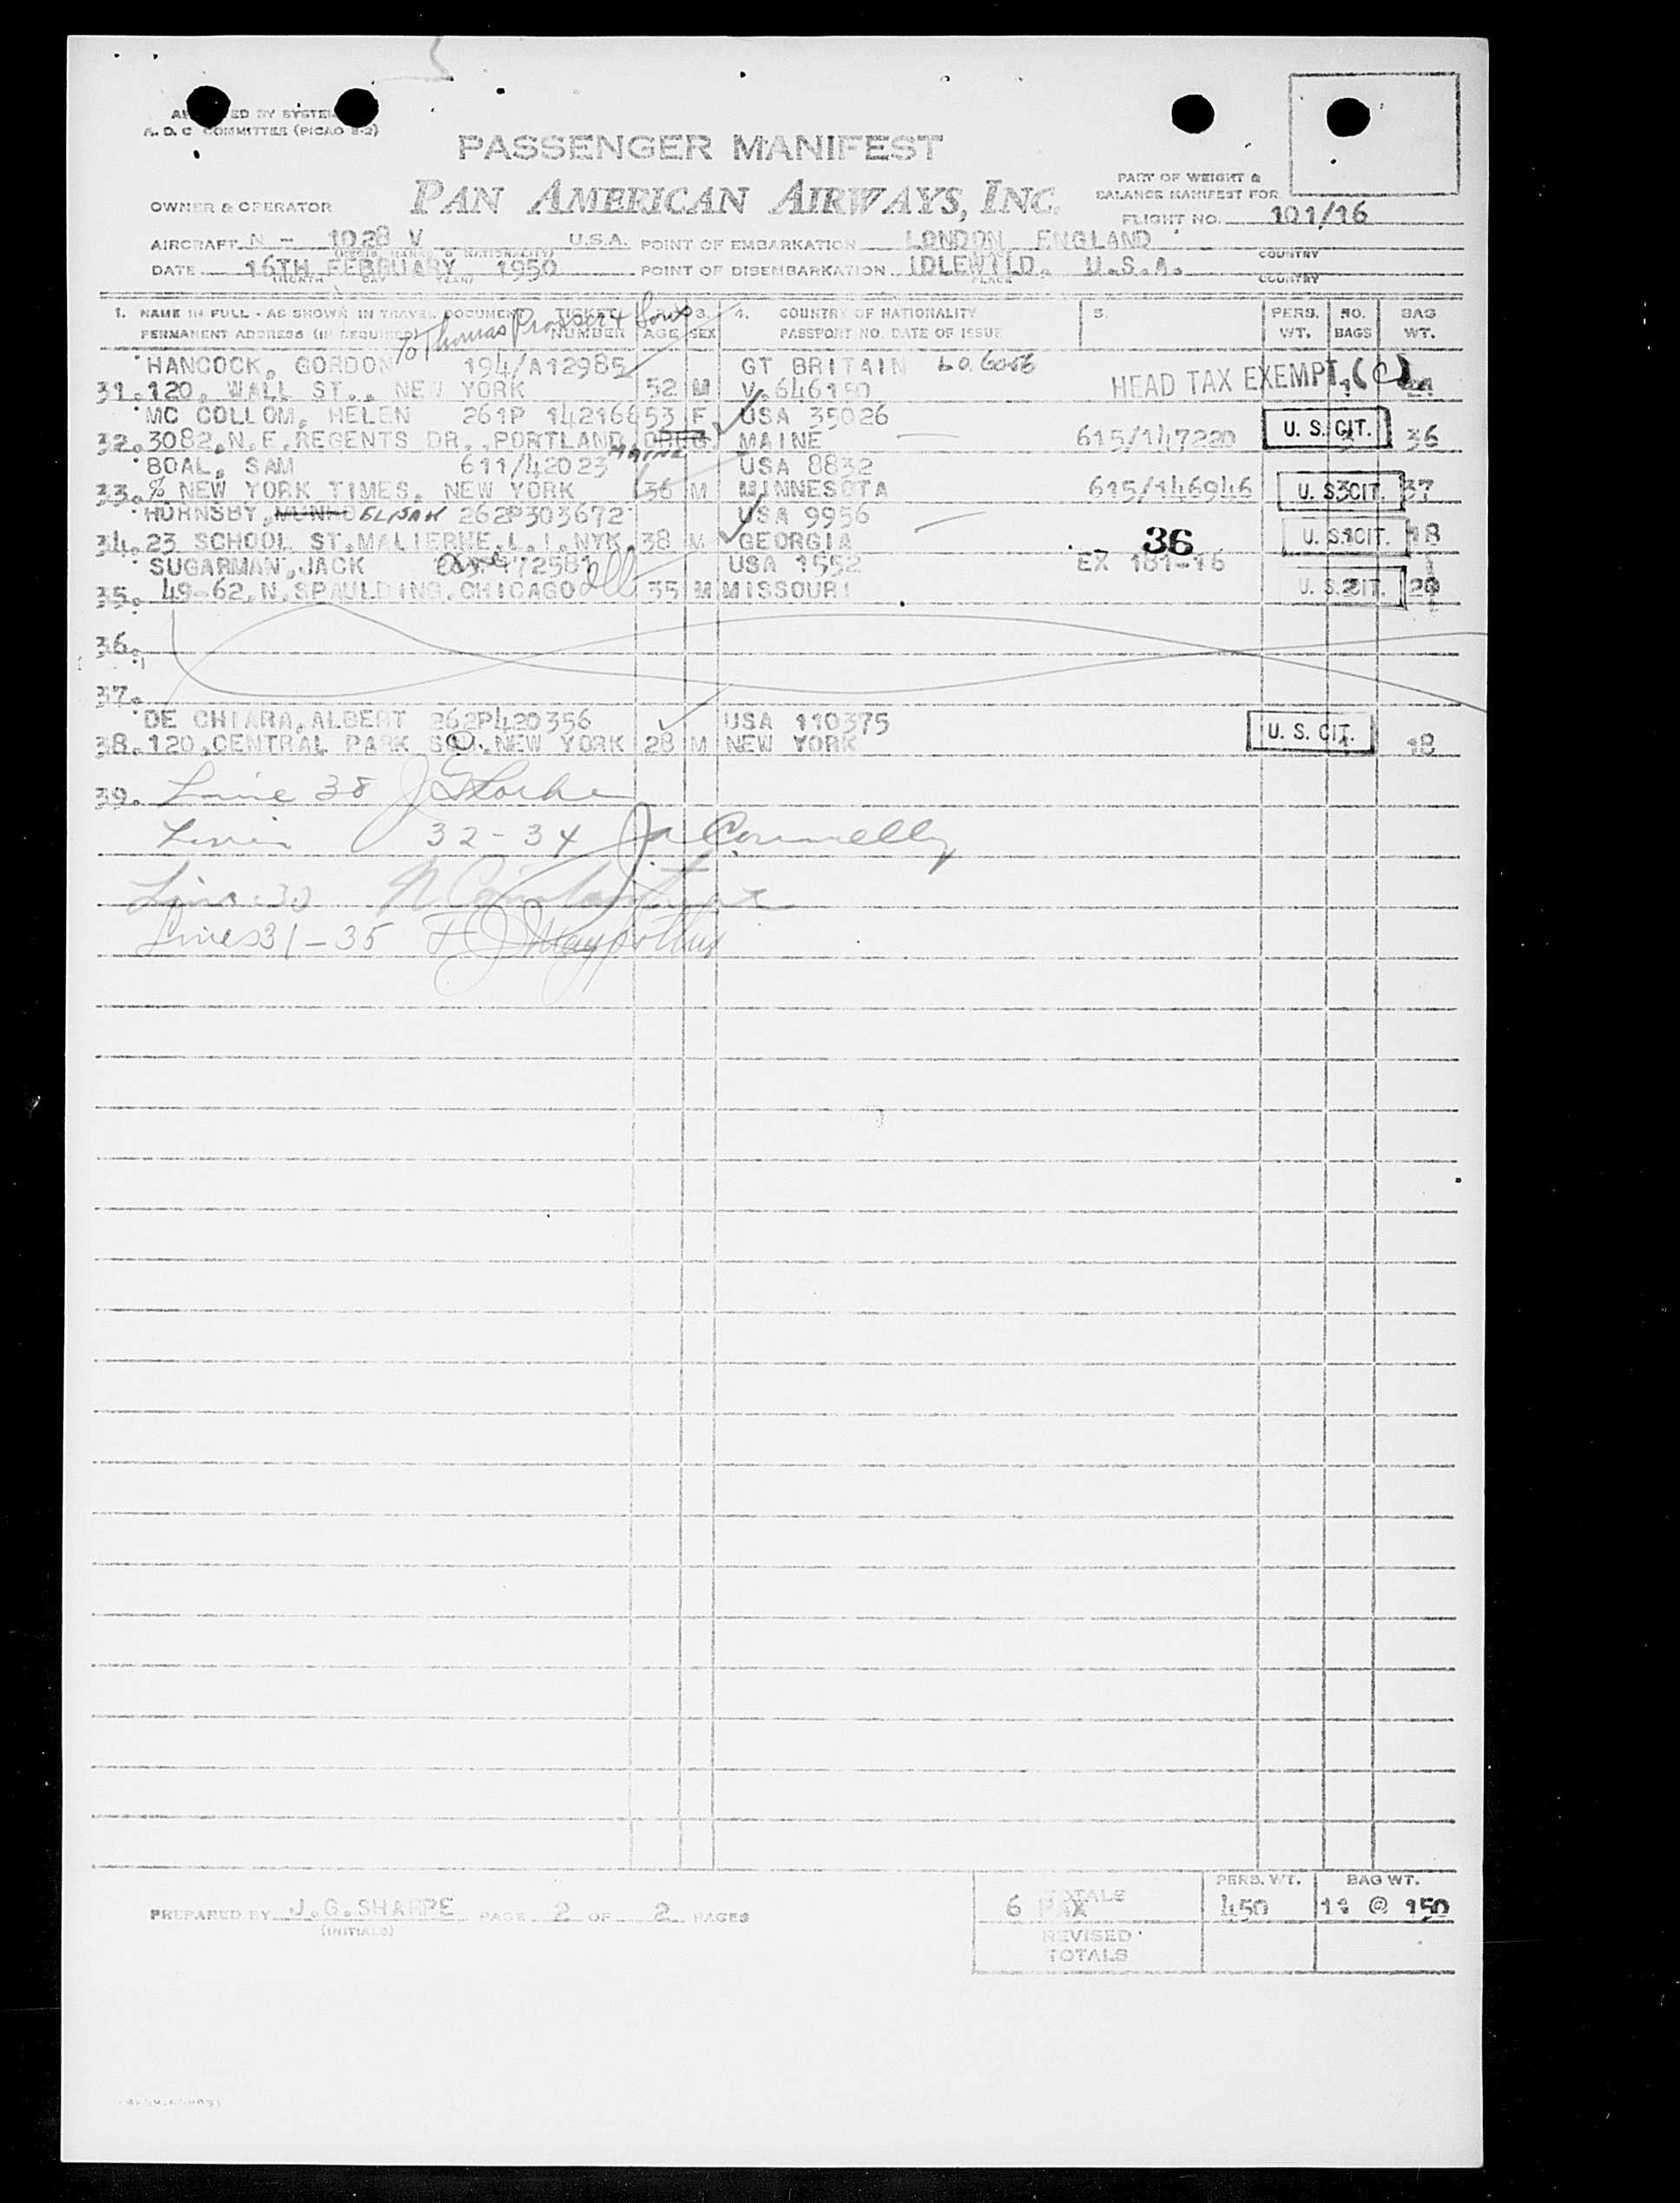 A. O. C COMMITTEE (PICAO
PASSENGER MANIFEST
PAN AMERICAN AIRWAYS, INC.
PART OF WEIGHT &
BALANCE MANIFEST FOR
OWNER & OPERATOR
FLIGHT NO. 101/16
AIRCRAFT N - 1028 V U.S.A. POINT OF EMBARKATION LONDON, ENGLAND
COUNTRY
DATE 16TH FEBRUARY, 1950 POINT OF DISEMBARKATION IDLEWILD, U.S.A.
(MONTH DAY YEAR) PLACE COUNTRY
1. NAME IN FULL - AS SHOWN IN TRAVEL DOCUMENT TICKET 3. 4. COUNTRY OF NATIONALITY 5. PERS. NO. BAG
PERMANENT ADDRESS (IF REQUIRED) NUMBER AGE SEX PASSPORT NO. DATE OF ISSUE WT. BAGS WT.
To Thomas Prosser & Sons
HANCOCK, GORDON 194/A12985 GT BRITAIN
31. 120, WALL ST., NEW YORK 52 M V.646150 HEAD TAX EXEMPT (C)
MC COLLOM, HELEN 261P 142166 53 F USA 35026
32. 3082,N.E.REGENTS DR.,PORTLAND, MAINE MAINE 615/147220 U. S. CIT. 36
BOAL, SAM 611/42023 USA 8832
33. % NEW YORK TIMES, NEW YORK 36 M MINNESOTA 615/146946 U. S. CIT. 3 37
HORNSBY, MUNRO ELIJAH 262P303672 USA 9956
34. 23 SCHOOL ST.MALIERNE.L.I.NYK. 38 M GEORGIA 36 U. S. CIT. 1 18
SUGARMAN, JACK USA 1552 EX 101-16
35. 49-62,N.SPAULDING,CHICAGO Ill 35 M MISSOURI U. S. CIT. 2 20
36.
37.
DE CHIARA, ALBERT 262P420356 USA 110375
38. 120,CENTRAL PARK SOU.NEW YORK 28 M NEW YORK U. S. CIT. 1 18
39. Line 38
32-34 Connelly
Lines 31-35
PERS. WT. BAG WT.
PREPARED BY J.G.SHARPE PAGE 2 OF 2 PAGES TOTALS 6 PAX 450 11 @ 150
(INITIALS)
REVISED
TOTALS